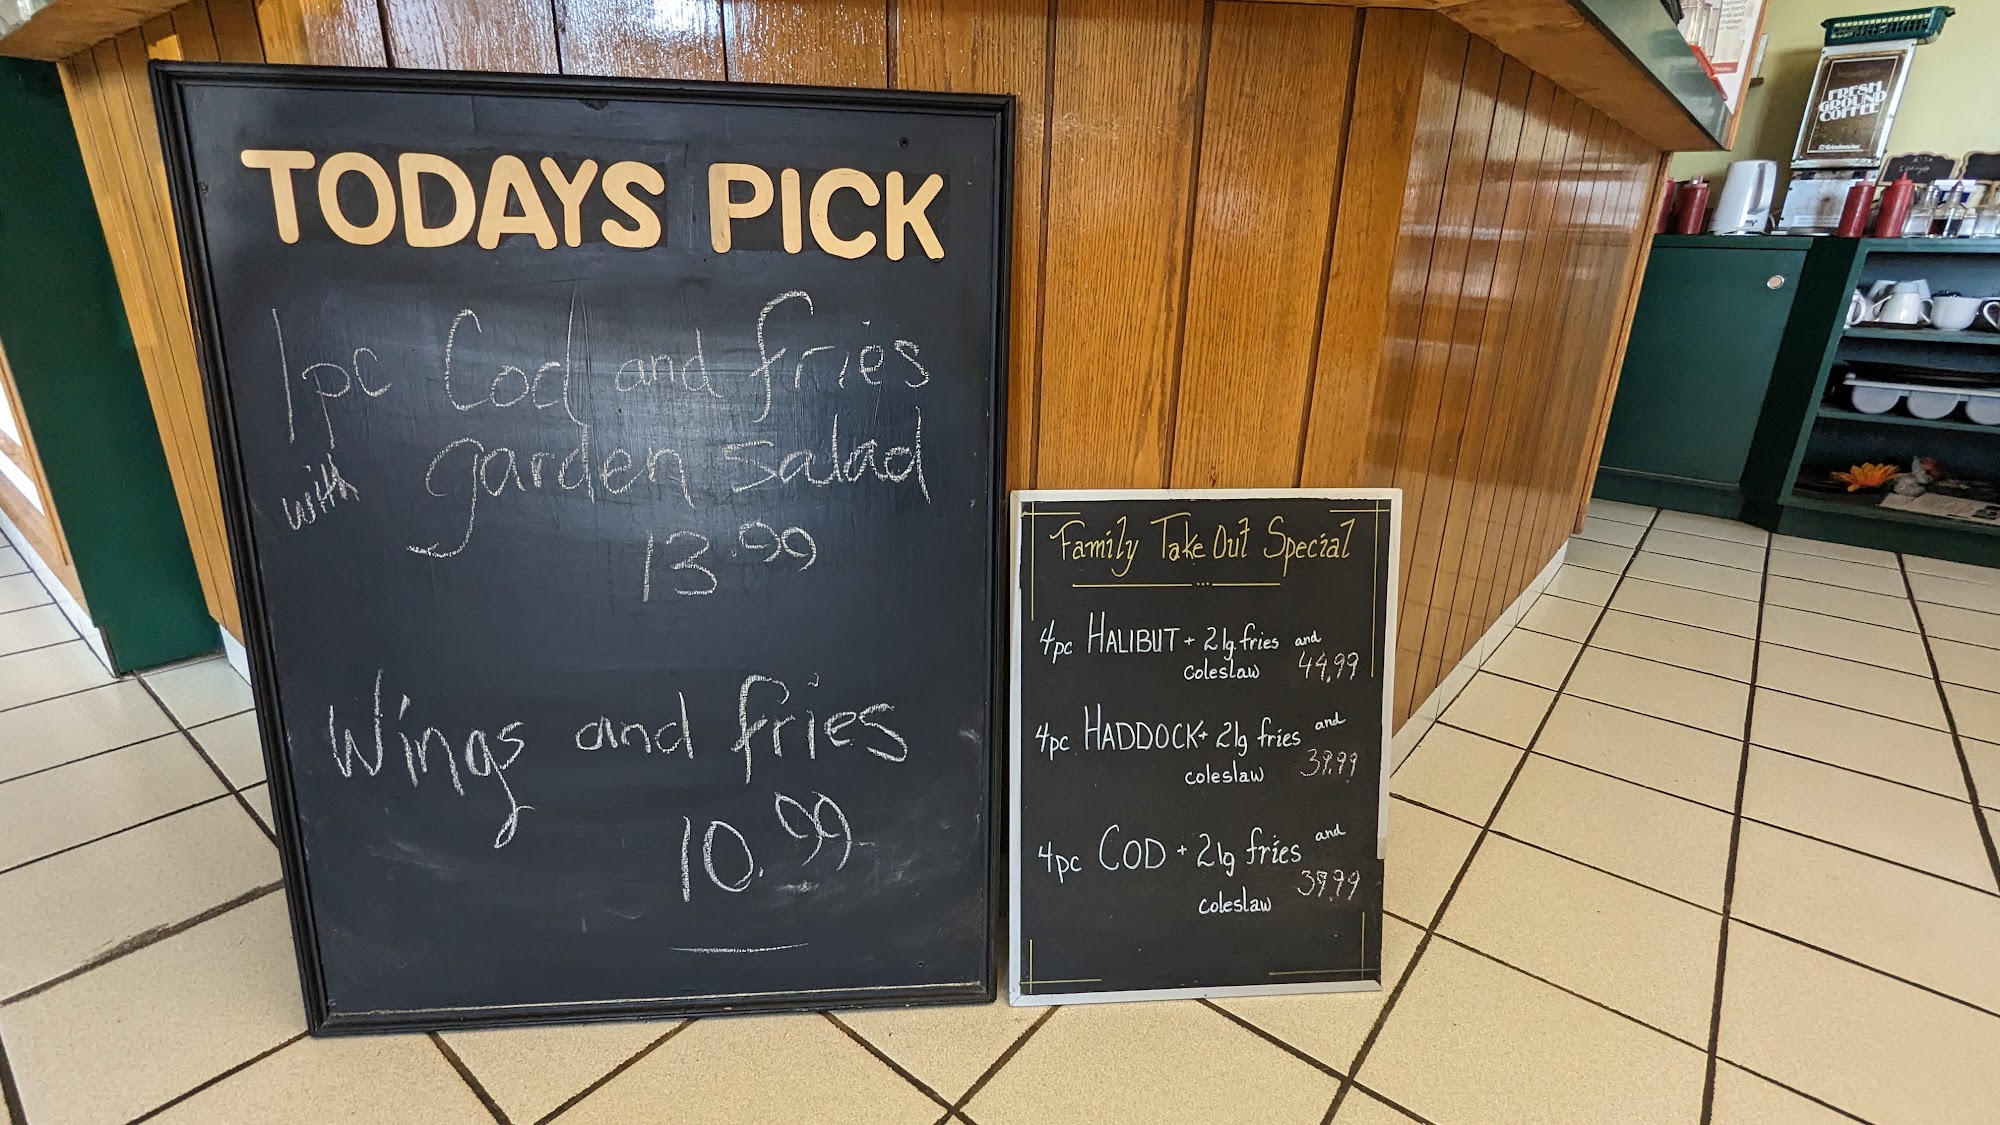 TODAYS PICK
1pc Cod and fries
with garden salad
13.99
Wings and fries
10.99
Family Take Out Special
4pc HALIBUT + 2 lg. fries and
coleslaw 44.99
4pc HADDOCK + 2 lg fries and
coleslaw 39.99
4pc COD + 2 lg fries and
coleslaw 39.99
FRESH
GROUND
COFFEE
Grindmaster